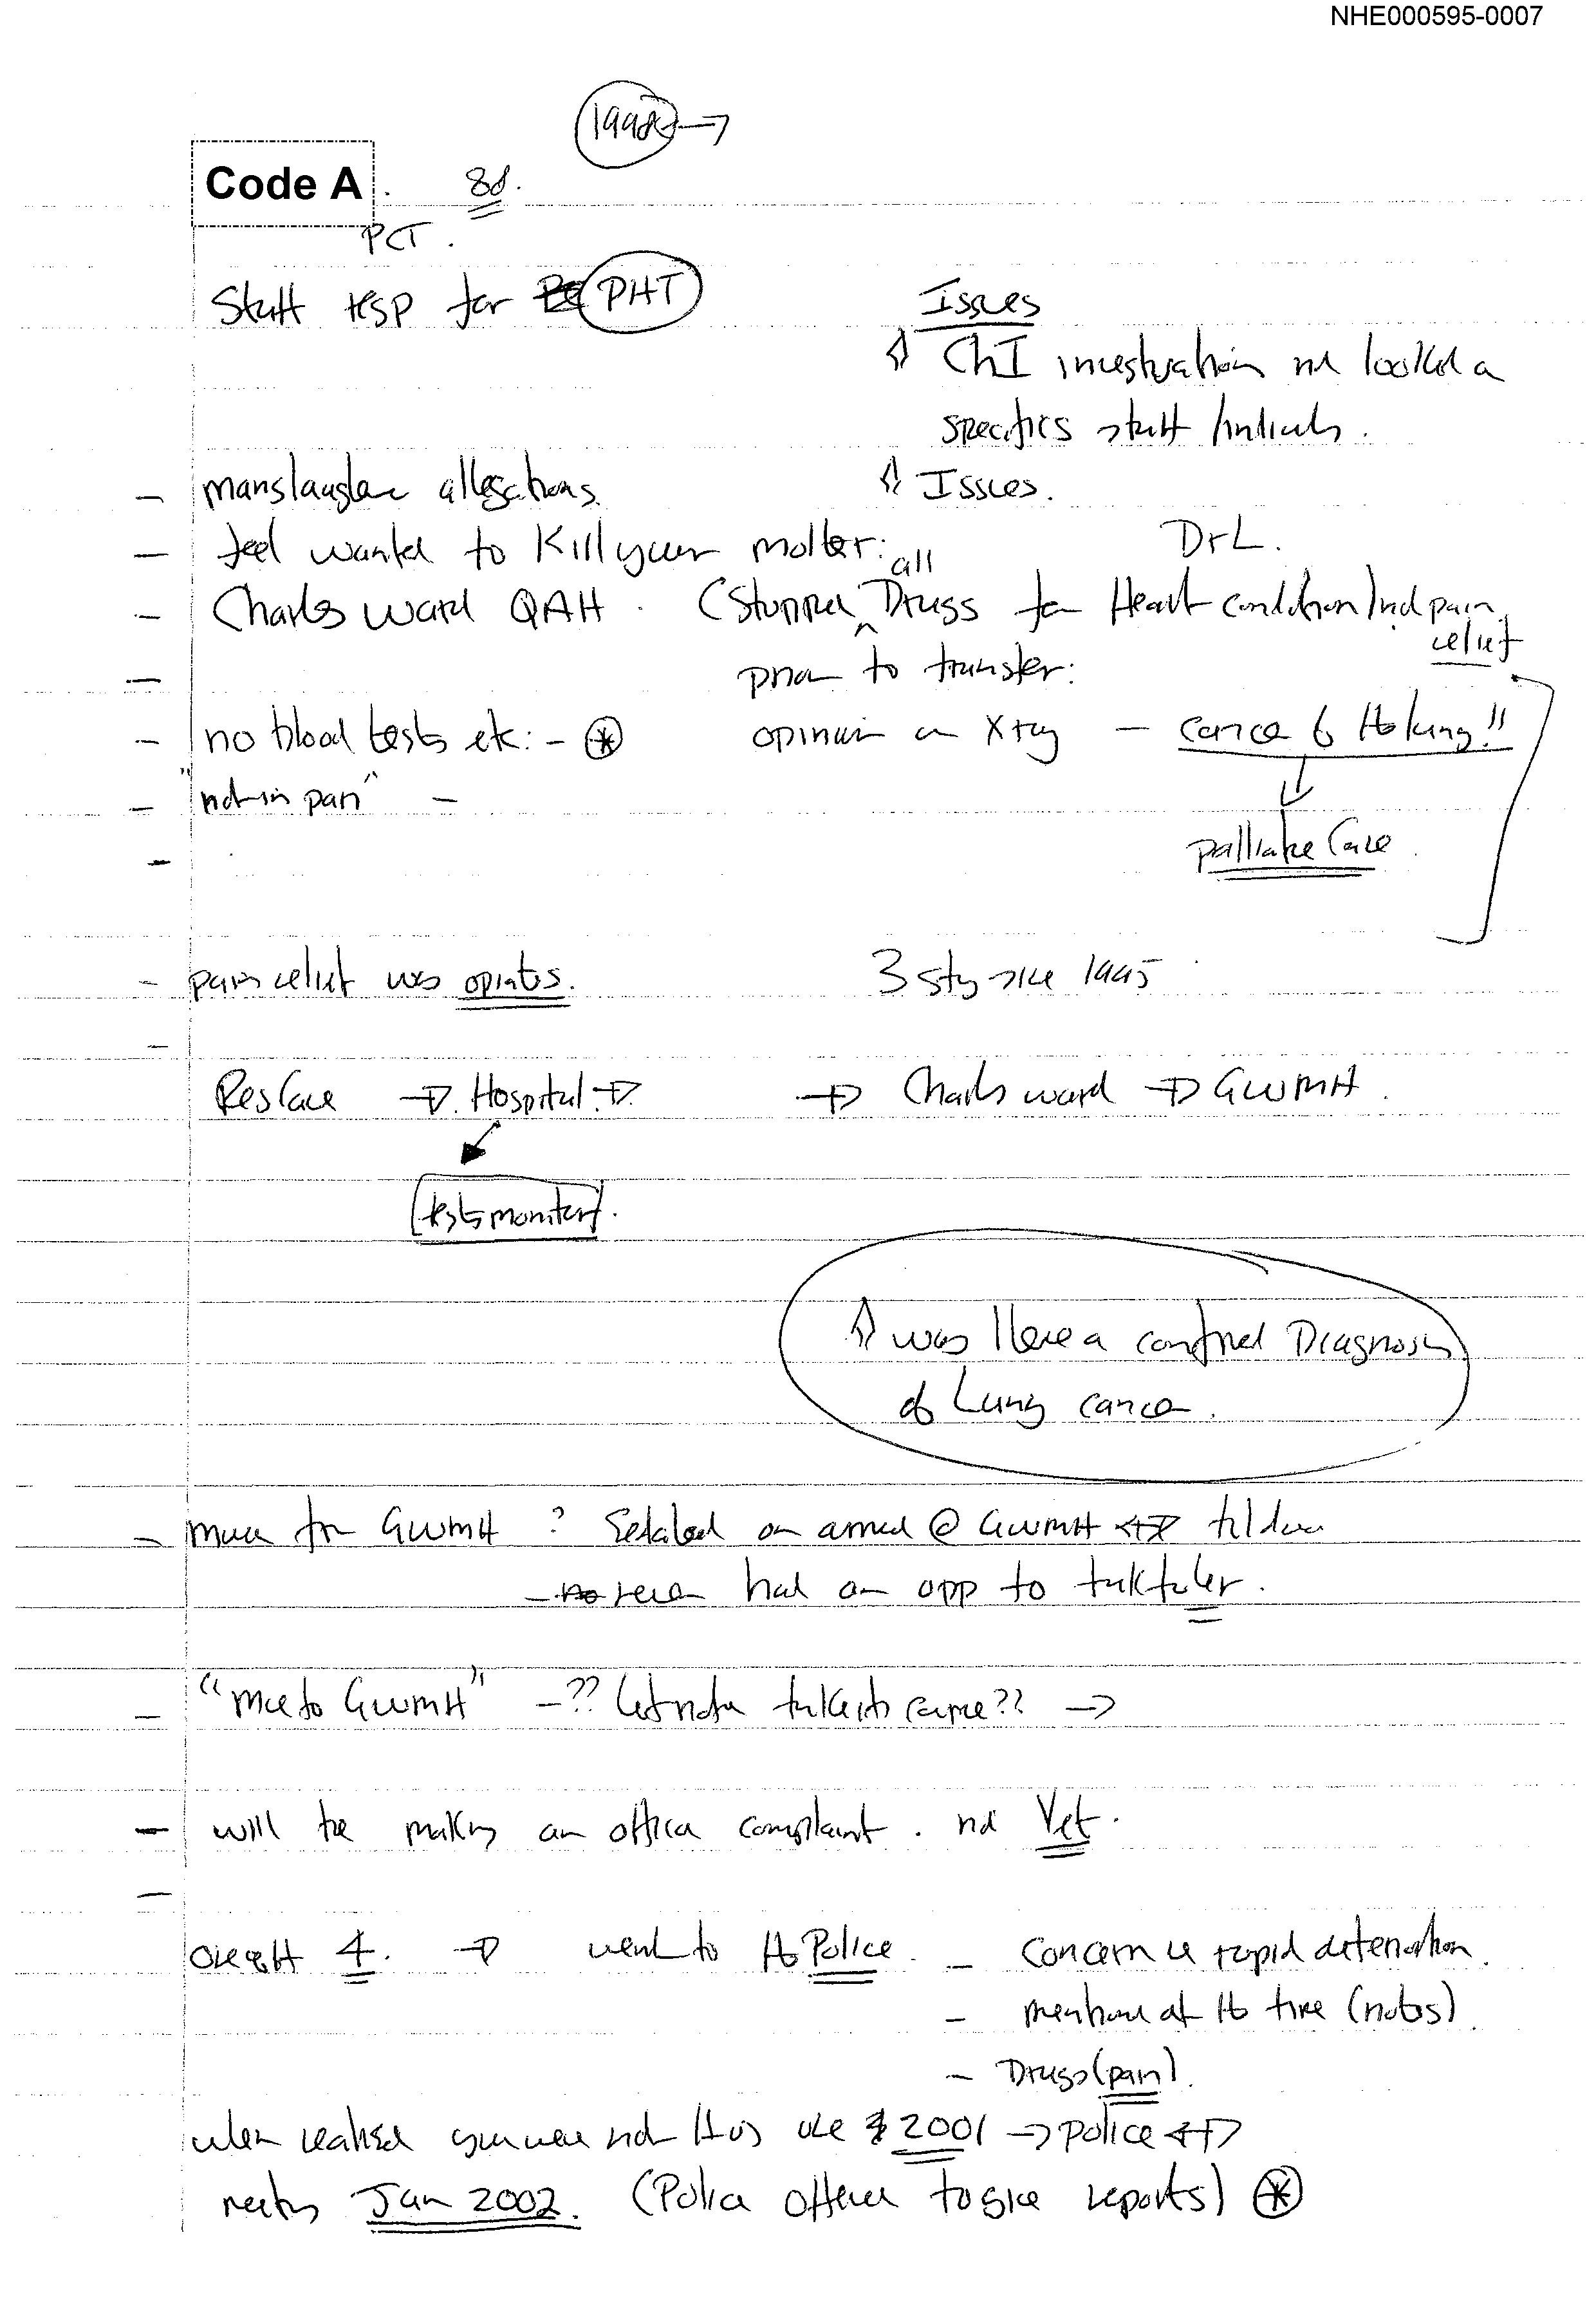 NHE000595-0007
1998 →
Code A . 81.
PCT.
Staff resp for PHT
Issues
CHI investigation not looked a
specifics staff /
- manslaughter allegations.
Issues.
- feel wanted to Kill your mother:
Dr L.
- Charles Ward QAH. (Stopped all Drugs for Heart condition / incl pain relief
prior to transfer:
- no blood tests etc: - *
opinion on Xray - cancer of the lung!!
- "not in pain" -
palliative Care
- pain relief was opiates.
3 since 1995
Res Care → Hospital. → → Charles ward → GWMH.
tests monitor.
was there a confirmed Diagnosis
of Lung cancer.
- move from GWMH ? Sedated on arrival @ GWMH
- never had an opp to talk to her.
- "move to GWMH" - ?? ?? →
- will be making an official complaint. not Yet.
4. → went to the Police - Concern re rapid deterioration.
- mentioned at the time (notes)
- Drugs (pain).
when realised you were not 2001 → police
meeting Jan 2002. (Police offered to give reports) *